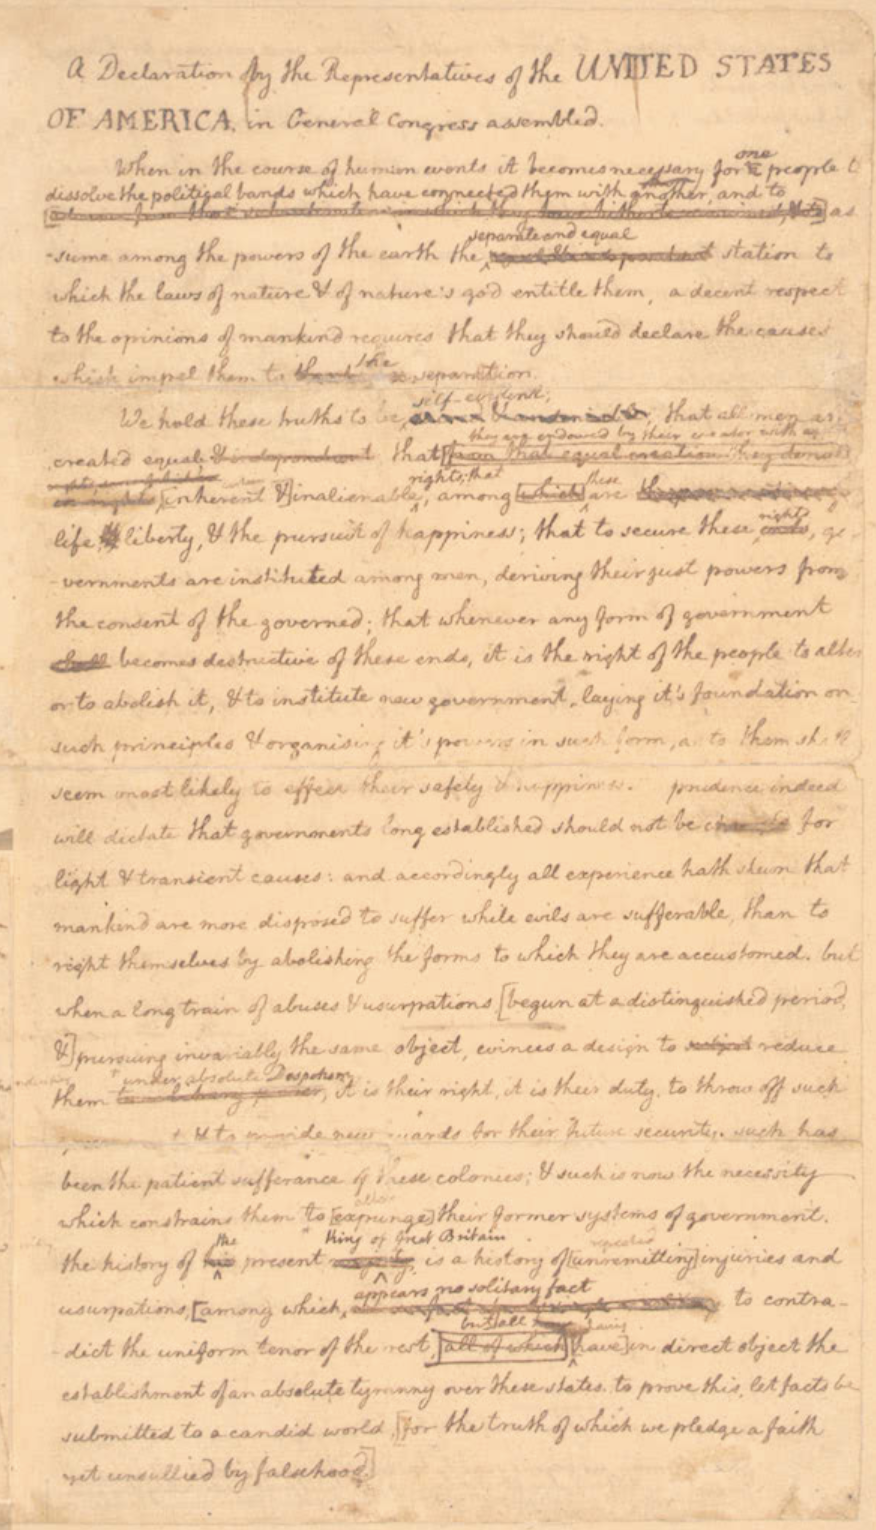 A Declaration by the Representatives of the UNITED STATES
OF AMERICA, in General Congress assembled.
When in the course of human events it becomes necessary for one people to
dissolve the political bands which have connected them with another, and to
as
separate and equal
-sume among the powers of the earth the station to
which the laws of nature & of nature's god entitle them, a decent respect
to the opinions of mankind requires that they should declare the causes
the
which impel them to separation.
self-evident;
We hold these truths to be that all men are
they are endowed by their creator with
created equal & independent that from that equal creation they
rights; that these
[inherent &] inalienable, among which are
rights
life & liberty, & the pursuit of happiness; that to secure these ends, go
-vernments are instituted among men, deriving their just powers from
the consent of the governed; that whenever any form of government
shall becomes destructive of these ends, it is the right of the people to alter
or to abolish it, & to institute new government, laying it's foundation on
such principles & organising it's powers in such form, as to them shall
seem most likely to effect their safety & happiness. prudence indeed
will dictate that governments long established should not be for
light & transient causes: and accordingly all experience hath shewn that
mankind are more disposed to suffer while evils are sufferable, than to
right themselves by abolishing the forms to which they are accustomed. but
when a long train of abuses & usurpations [begun at a distinguished period,
&] pursuing invariably the same object, evinces a design to reduce
under absolute Despotism
them it is their right, it is their duty, to throw off such
& to provide new guards for their future security. such has
been the patient sufferance of these colonies; & such is now the necessity
alter
which constrains them to [expunge] their former systems of government.
the King of Great Britain repeated
the history of his present majesty, is a history of [unremitting] injuries and
appears no solitary fact
usurpations, [among which, to contra-
but all
-dict the uniform tenor of the rest, [all of which] [have] in direct object the
establishment of an absolute tyranny over these states. to prove this, let facts be
submitted to a candid world, [for the truth of which we pledge a faith
yet unsullied by falsehood.]